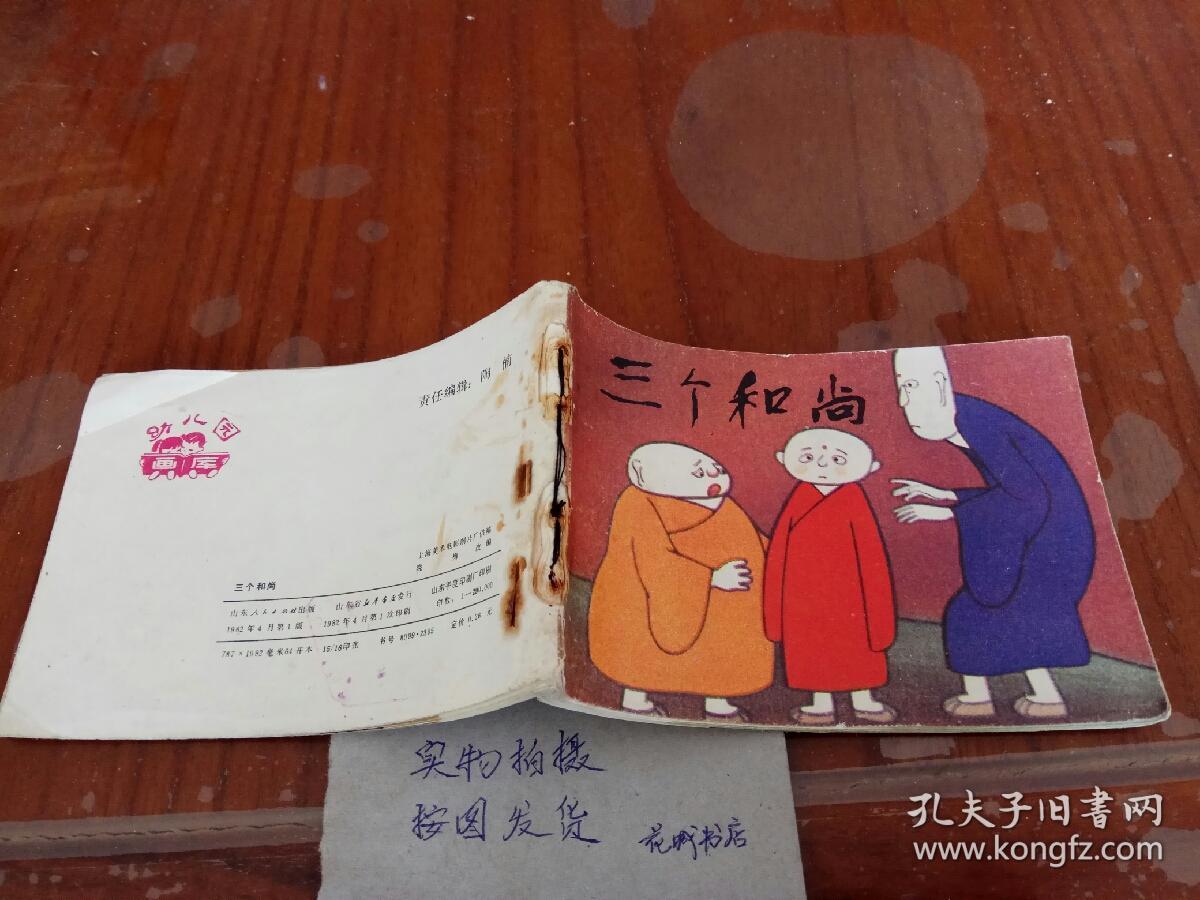 三个和尚
责任编辑：陶楠
幼儿园
画库
上海美术电影制片厂供稿
改编
三个和尚
山东人民出版社出版 山东省新华书店发行 山东新华印刷厂印刷
1982年4月第1版 1982年4月第1次印刷 印数：1—200,000
787×1092毫米64开本 15/16印张 书号 8099·2315 定价 0.16 元
实物拍摄
按图发货
花城书店
孔夫子旧書网
www.kongfz.com